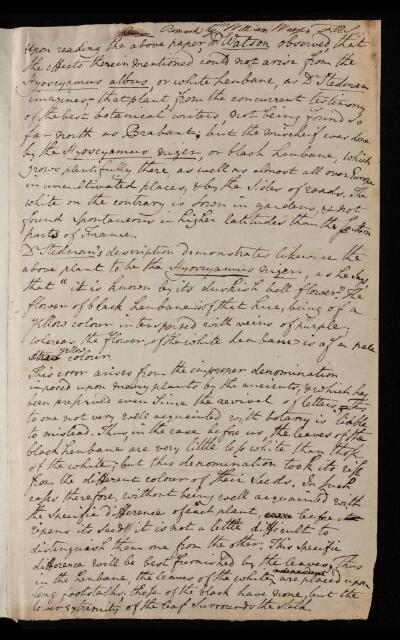 Remark by William Watson
Upon reading the above paper, Dr Watson observed, that
the effects therein mentioned could not arise from the
Hyoscyamus albus, or white henbane, as Dr Stedman
imagines; that plant, from the concurrent testimony
of the best botanical writers, not being found so
far north as Brabant; but the mischief was done
by the Hyoscyamus niger, or black henbane, which
grows plentifully there, as well as almost all over Europe
in uncultivated places, & by the sides of roads. The
white on the contrary is sown in gardens, & not
found spontaneous in higher latitudes than the southern
parts of France.
Dr Stedman's description demonstrates likewise the
above plant to be the Hyoscyamus niger, as he says
that "it is known by its duskish bell flower." The
flower of black henbane is of that hue, being of a
yellow colour interspersed with veins of purple;
whereas the flower of the white henbane is of a pale
yellow colour.
This error arises from the improper denomination
imposed upon many plants by the ancients, & which has
been preserved even since the revival of letters,
to one not very well acquainted with botany is liable
to mislead. Thus, in the case before us, the leaves of the
black henbane are very little less white than those
of the white; but this denomination took its rise
from the different colour of their seeds. In such
cases therefore, without being well acquainted with
the specific difference of each plant, before it
ripens its seed it is not a little difficult to
distinguish them one from the other. This specific
difference will be best furnished by the leaves. Thus
in the henbane, the leaves of the white are placed upon
long footstalks; those of the black have none, but the
lower extremity of the leaf surrounds the stalk.